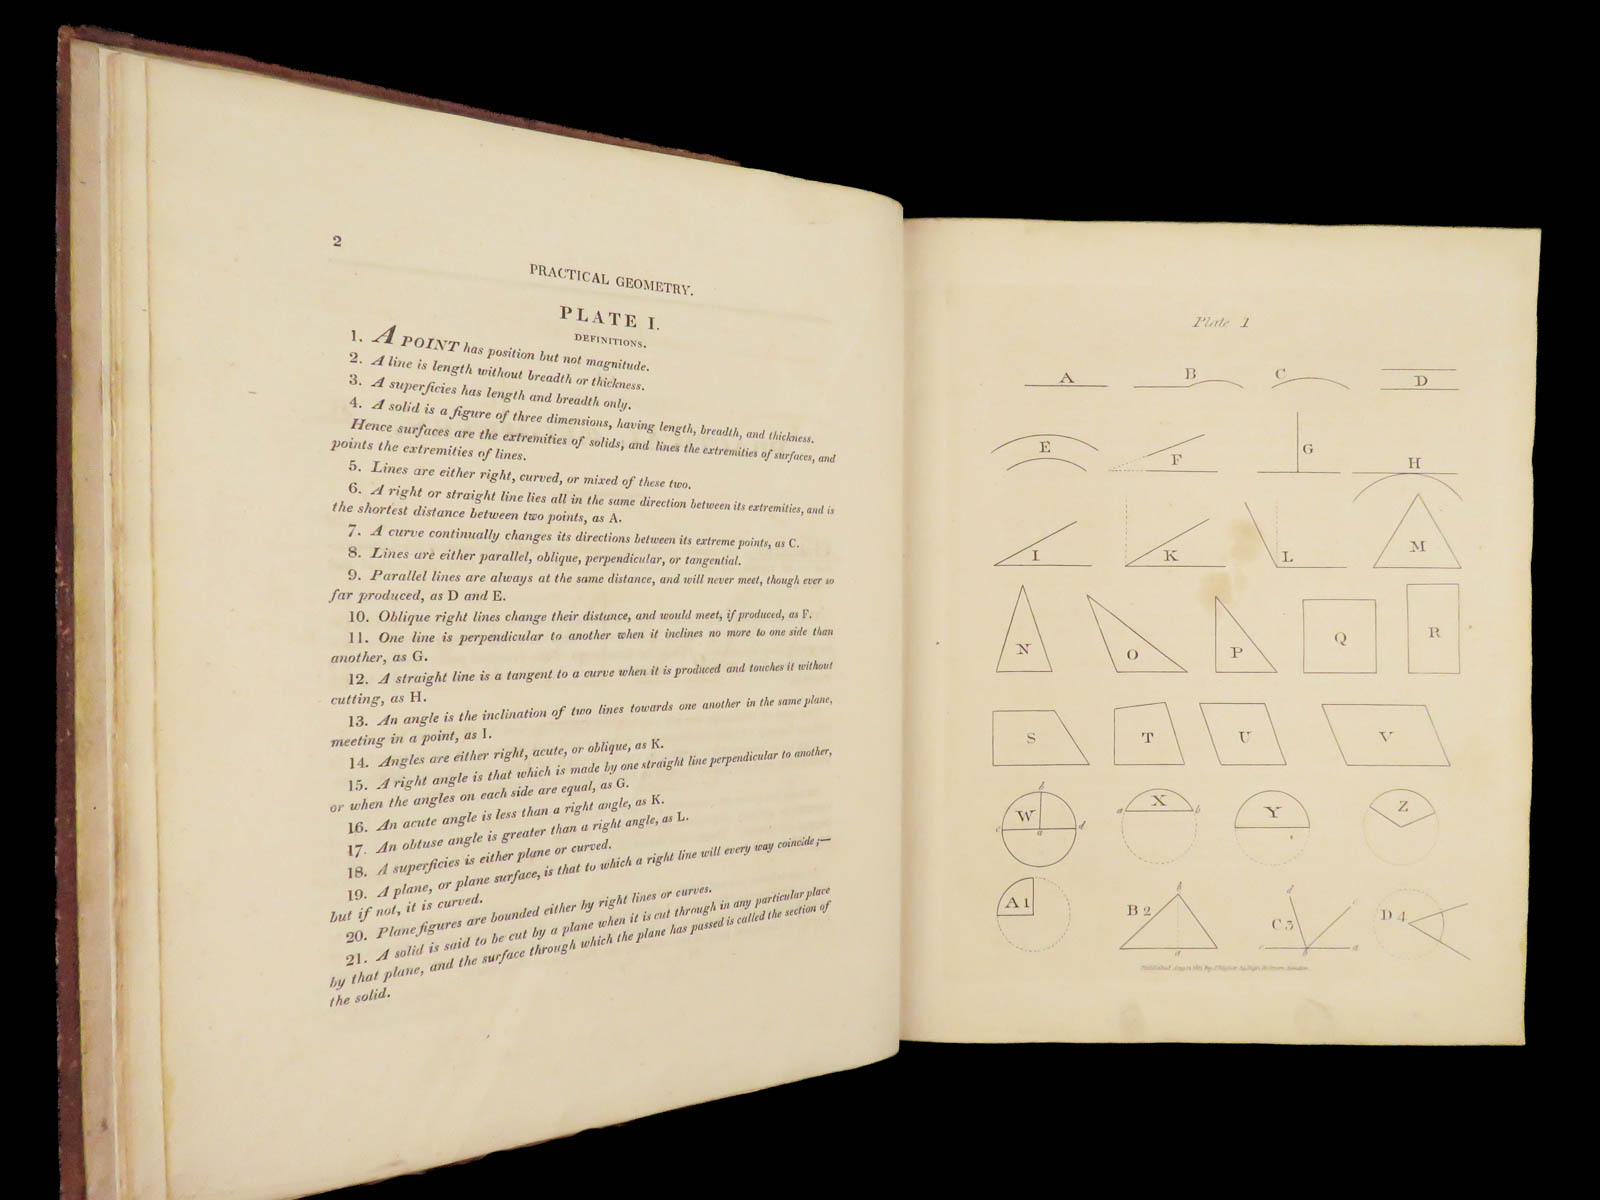 2
PRACTICAL GEOMETRY.
PLATE I.
DEFINITIONS.
1. A POINT has position but not magnitude.
2. A line is length without breadth or thickness.
3. A superficies has length and breadth only.
4. A solid is a figure of three dimensions, having length, breadth, and thickness.
Hence surfaces are the extremities of solids, and lines the extremities of surfaces, and
points the extremities of lines.
5. Lines are either right, curved, or mixed of these two.
6. A right or straight line lies all in the same direction between its extremities, and is
the shortest distance between two points, as A.
7. A curve continually changes its directions between its extreme points, as C.
8. Lines are either parallel, oblique, perpendicular, or tangential.
9. Parallel lines are always at the same distance, and will never meet, though ever so
far produced, as D and E.
10. Oblique right lines change their distance, and would meet, if produced, as F.
11. One line is perpendicular to another when it inclines no more to one side than
another, as G.
12. A straight line is a tangent to a curve when it is produced and touches it without
cutting, as H.
13. An angle is the inclination of two lines towards one another in the same plane,
meeting in a point, as I.
14. Angles are either right, acute, or oblique, as K.
15. A right angle is that which is made by one straight line perpendicular to another,
or when the angles on each side are equal, as G.
16. An acute angle is less than a right angle, as K.
17. An obtuse angle is greater than a right angle, as L.
18. A superficies is either plane or curved.
19. A plane, or plane surface, is that to which a right line will every way coincide;—
but if not, it is curved.
20. Plane figures are bounded either by right lines or curves.
21. A solid is said to be cut by a plane when it is cut through in any particular place
by that plane, and the surface through which the plane has passed is called the section of
the solid.
Plate 1
A B C D
E F G H
I K L M
N O P Q R
S T U V
b
W X Y Z
a b
c a d
A 1 B 2 b d C 3 D 4
a c b a
Published by J. Taylor High Holborn London